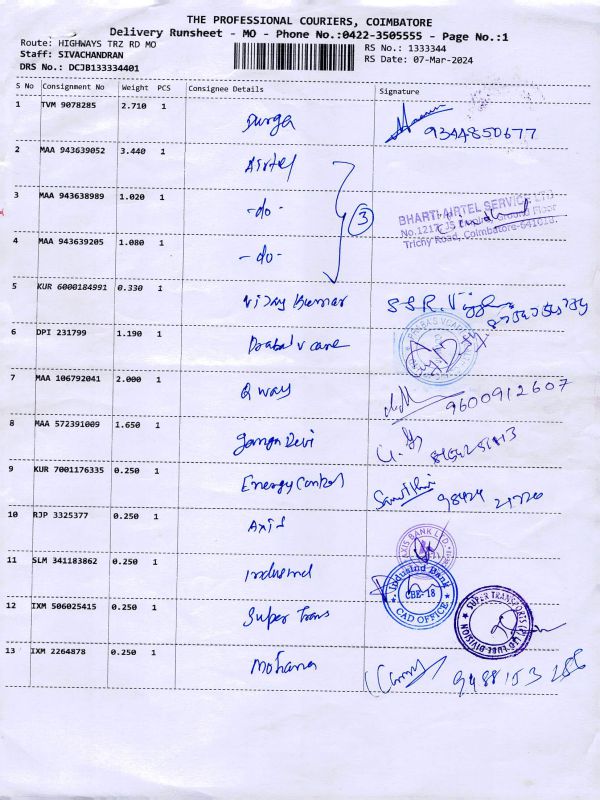 THE PROFESSIONAL COURIERS, COIMBATORE
Delivery Runsheet - MO - Phone No.:0422-3505555 - Page No.:1
Route: HIGHWAYS TRZ RD MO
RS No.: 1333344
Staff: SIVACHANDRAN
RS Date: 07-Mar-2024
DRS No.: DCJB133334401
S No Consignment No Weight PCS Consignee Details Signature
1 TVM 9078285 2.710 1 Durga 9344850677
2 MAA 943639052 3.440 1 Airtel
3 MAA 943638989 1.020 1 -do- 3
BHARTI AIRTEL SERVICE LTD
Ground Floor
Trichy Road, Coimbatore-641018.
4 MAA 943639205 1.080 1 -do-
5 KUR 6000184991 0.330 1 Vijay Kumar S.S.R.
6 DPI 231799 1.190 1 v care
7 MAA 106792041 2.000 1 Q way 9600912607
8 MAA 572391009 1.650 1 ganga Devi
9 KUR 7001176335 0.250 1 Energy Control 98424
10 RJP 3325377 0.250 1 Axis
AXIS BANK LTD
11 SLM 341183862 0.250 1 Indusind
IndusInd Bank
CBE-18
CAD OFFICE
12 IXM 506025415 0.250 1 Super Trans
SUPER TRANSPORTS (P)
DIVISION
13 IXM 2264878 0.250 1 Mohana 9488153286